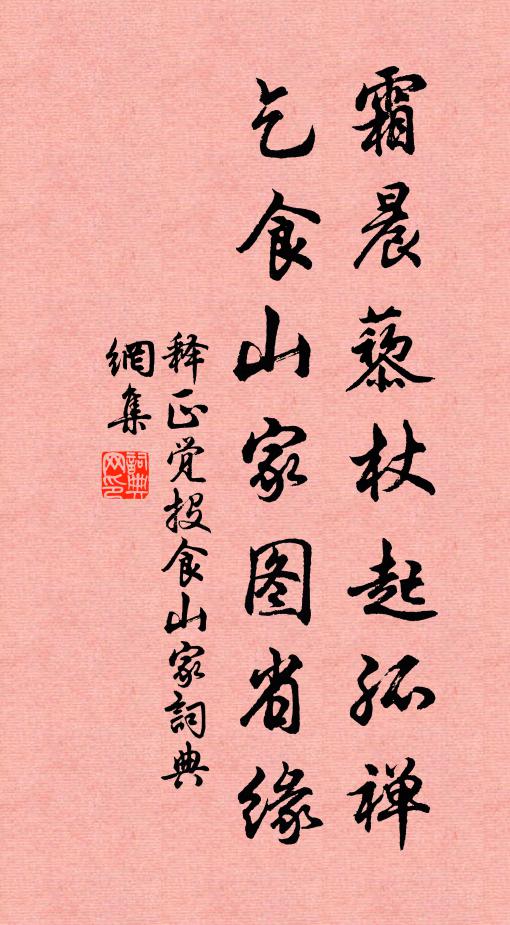 霜晨藜杖起孤禅
乞食山家图省缘
释正觉投食山家詞典
網集
詞典网印